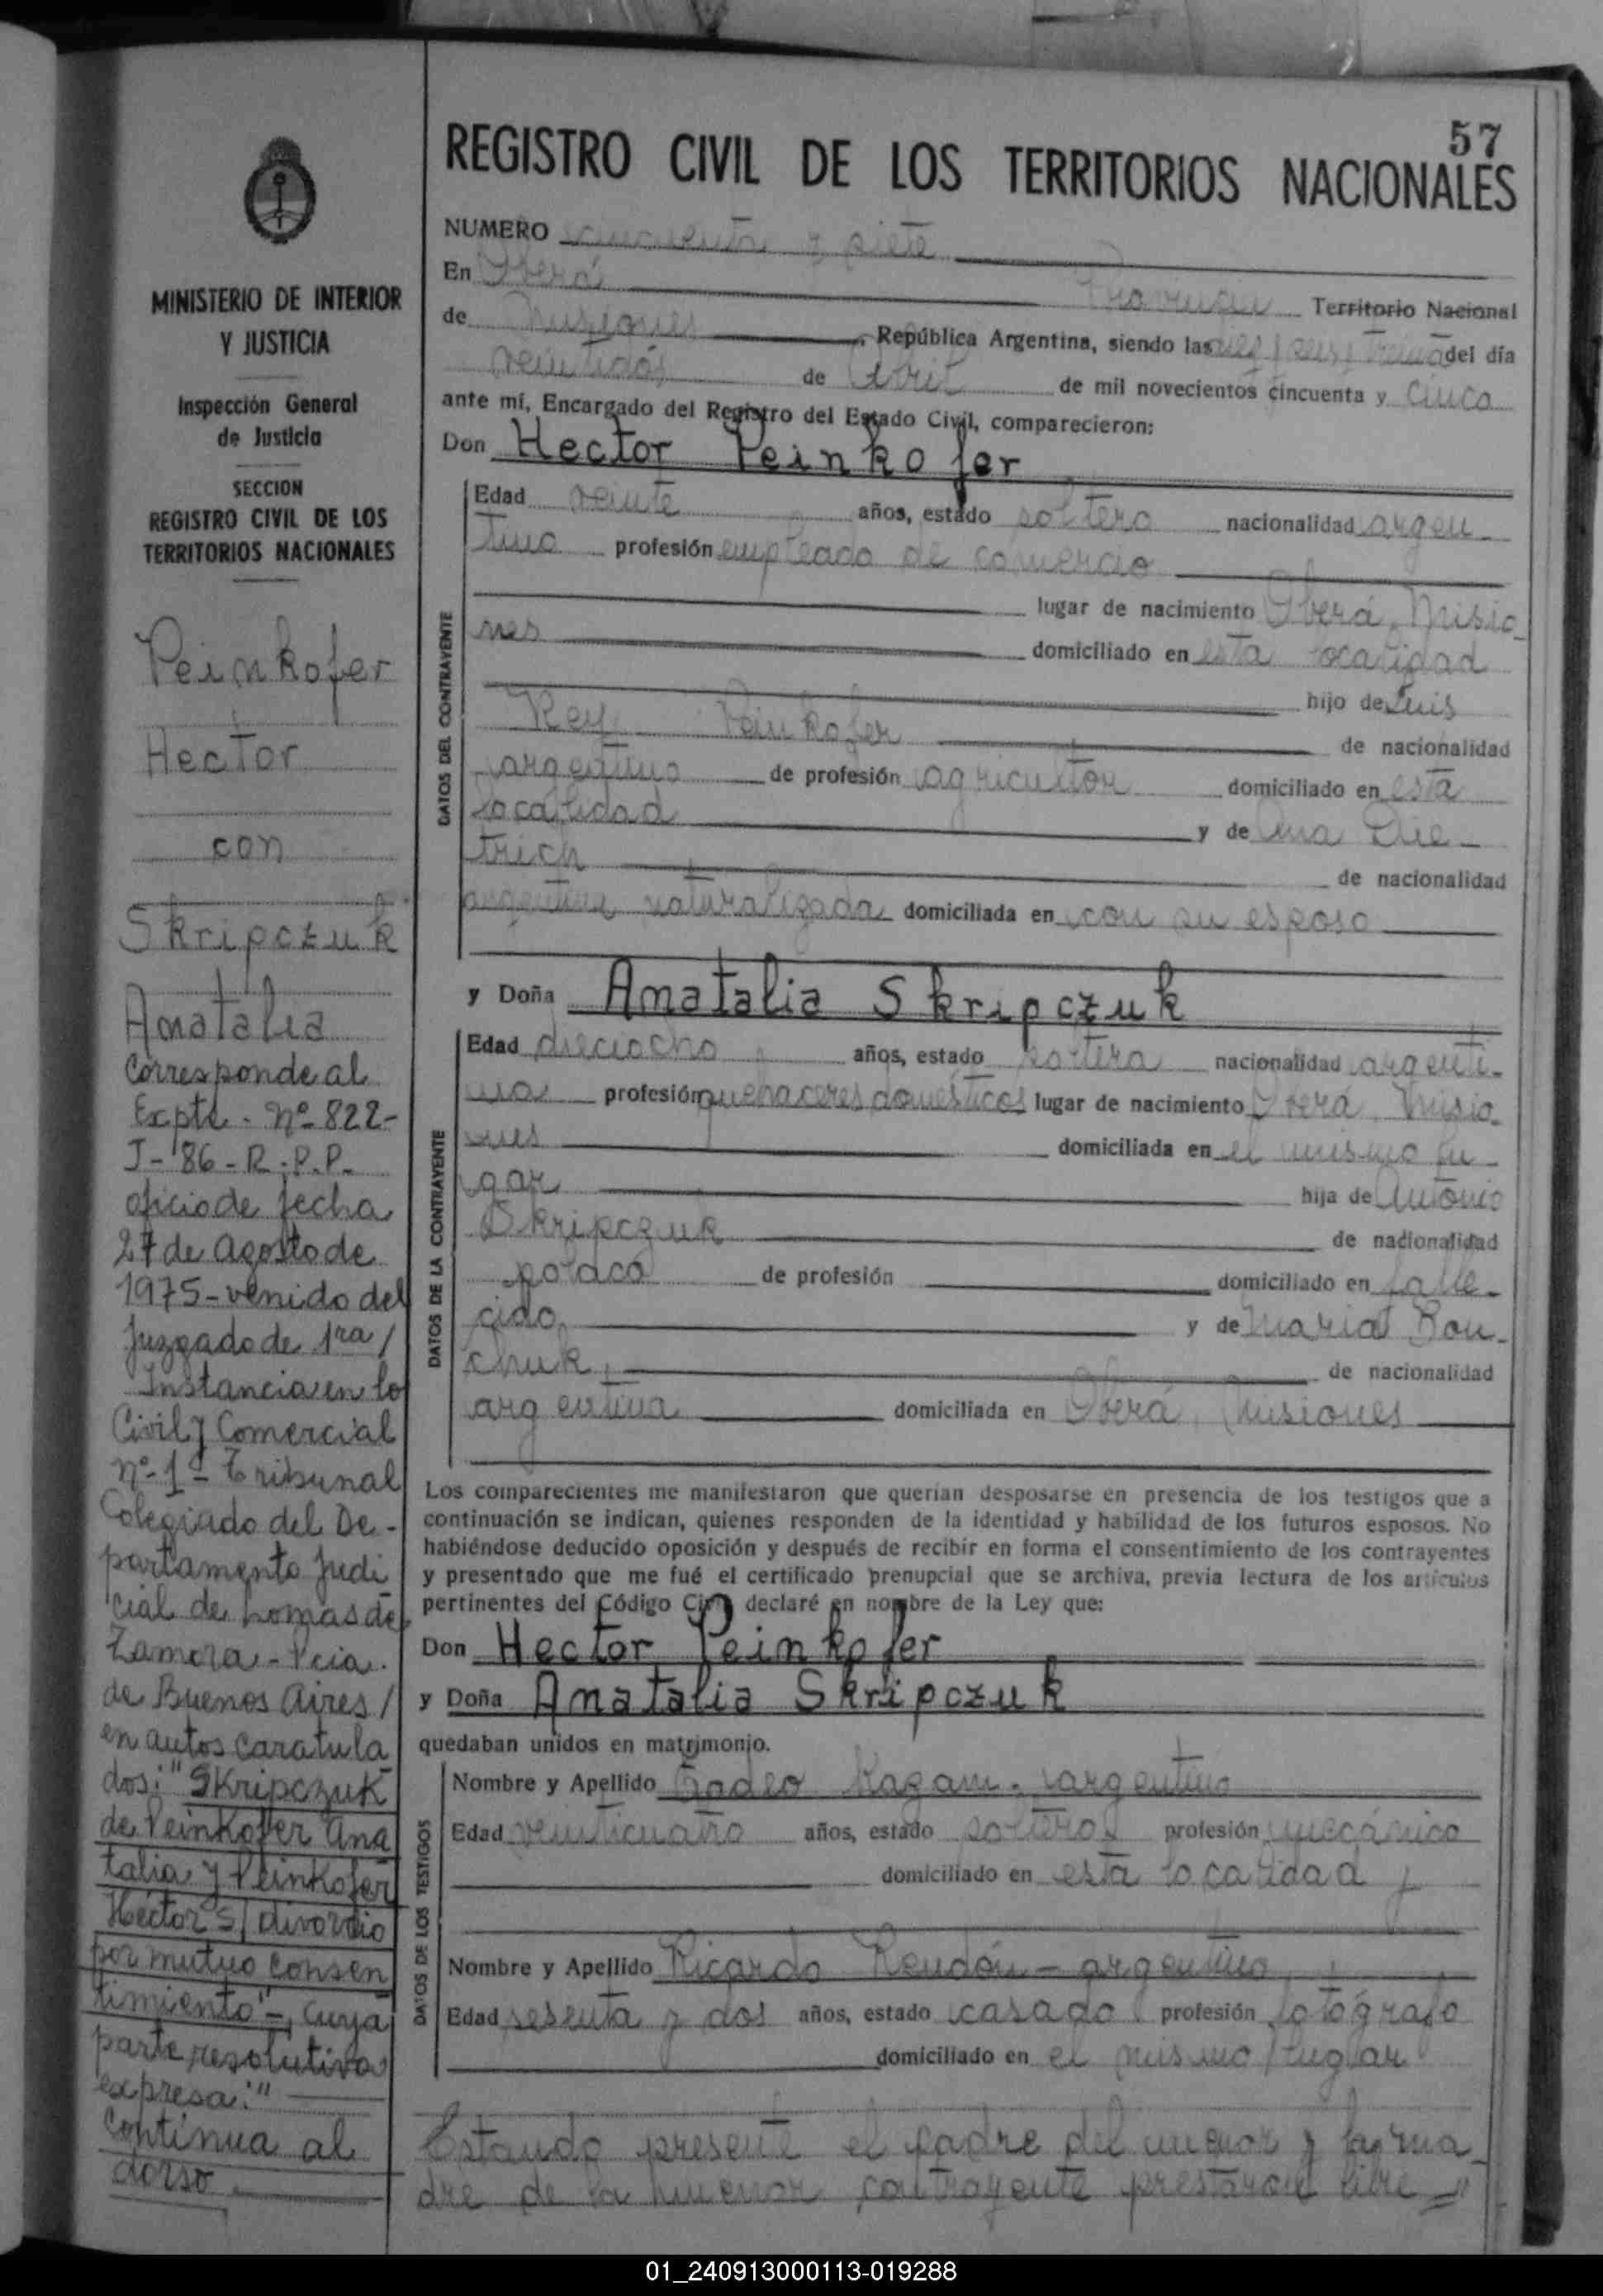 57
REGISTRO CIVIL DE LOS TERRITORIOS NACIONALES
MINISTERIO DE INTERIOR
Y JUSTICIA
Inspección General
de Justicia
SECCION
REGISTRO CIVIL DE LOS
TERRITORIOS NACIONALES
Peinkofer
Hector
con
Skripczuk
Anatalia
Corresponde al
Expte. Nº 822-
J-86-R.P.P.
oficio de fecha
27 de Agosto de
1975-venido del
Juzgado de 1ra/
Instancia en lo
Civil y Comercial
nº-1º-Tribunal
Colegiado del De-
partamento Judi
cial de Lomas de
Zamora-Pcia.
de Buenos Aires/
en autos caratula
dos: "Skripczuk
de Peinkofer Ana
talia y Peinkofer
Héctor s/ divorcio
por mutuo consen
timiento"-, cuya
parte resolutiva
expresa:"
continua al
dorso
NUMERO cincuenta y siete
En Oberá Provincia Territorio Nacional
de Misiones, República Argentina, siendo las diez y seis y treinta del día
veintidós de Abril de mil novecientos cincuenta y cinco
ante mí, Encargado del Registro del Estado Civil, comparecieron:
Don Hector Peinkofer
DATOS DEL CONTRAYENTE
Edad veinte años, estado soltero nacionalidad argen-
tino profesión empleado de comercio
lugar de nacimiento Oberá, Misio-
nes domiciliado en esta localidad
hijo de Luis
Rey Peinkofer de nacionalidad
argentino de profesión agricultor domiciliado en esta
localidad y de Ana Die-
trich de nacionalidad
argentina naturalizada domiciliada en con su esposo
y Doña Anatalia Skripczuk
DATOS DE LA CONTRAYENTE
Edad dieciocho años, estado soltera nacionalidad argenti-
na profesión quehaceres domésticos lugar de nacimiento Oberá, Misio-
nes domiciliada en el mismo lu-
gar hija de Antonio
Skripczuk de nacionalidad
polaca de profesión domiciliado en falle-
cido, y de María Bon-
chuk, de nacionalidad
argentina domiciliada en Oberá, Misiones
Los comparecientes me manifestaron que querían desposarse en presencia de los testigos que a
continuación se indican, quienes responden de la identidad y habilidad de los futuros esposos. No
habiéndose deducido oposición y después de recibir en forma el consentimiento de los contrayentes
y presentado que me fué el certificado prenupcial que se archiva, previa lectura de los artículos
pertinentes del Código Civil declaré en nombre de la Ley que:
Don Hector Peinkofer
y Doña Anatalia Skripczuk
quedaban unidos en matrimonio.
DATOS DE LOS TESTIGOS
Nombre y Apellido Tadeo - argentino
Edad veinticuatro años, estado soltero profesión mecánico
domiciliado en esta localidad y
Nombre y Apellido Ricardo Rendón - argentino
Edad sesenta y dos años, estado casado profesión fotógrafo
domiciliado en el mismo lugar
Estando presente el padre del menor y la ma-
dre de la menor contrayente prestaron libre="
01_240913000113-019288